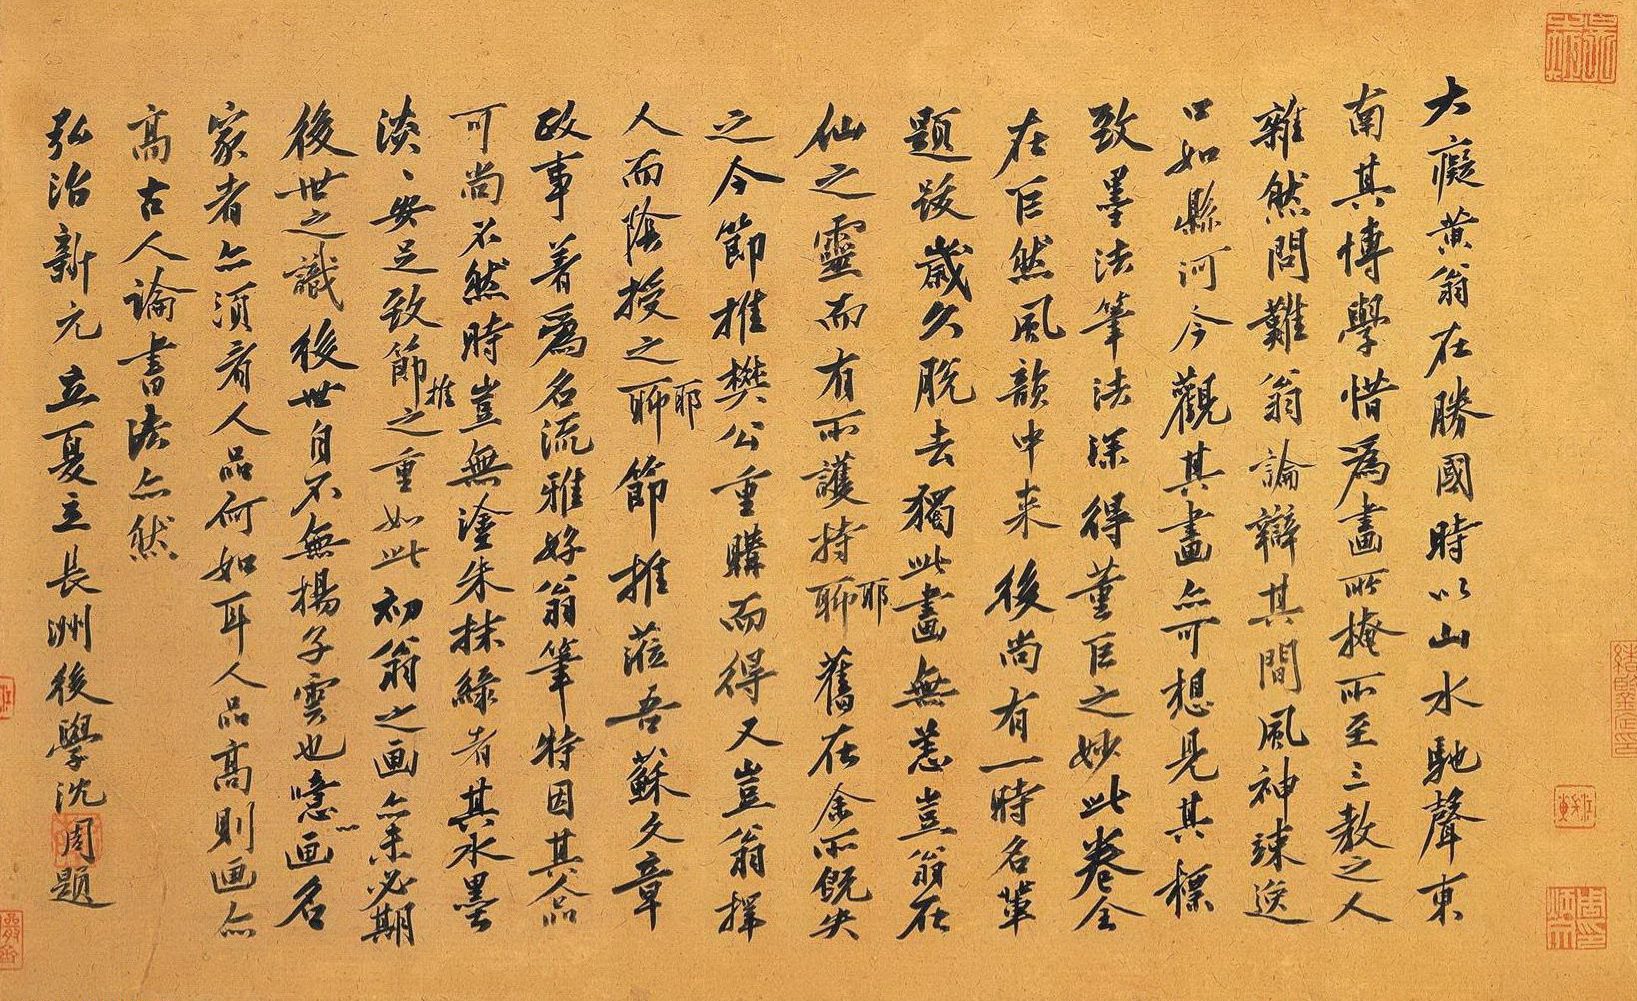 大癡黃翁在勝國時以山水馳聲東
南其博學惜爲畫所掩所至三教之人
雜然問難翁論辯其間風神竦逸
口如縣河今觀其畫亦可想見其標
致墨法筆法深得董巨之妙此卷全
在巨然風韻中来後尚有一時名輩
題跋歲久脫去獨此畫無恙豈翁在
仙之靈而有所護持聊耶舊在余所既失
之今節推樊公重購而得又豈翁擇
人而陰授之聊耶節推蒞吾蘇文章
政事著爲名流雅好翁筆特因其人品
可尚不然時豈無塗朱抹綠者其水墨
淡、安足致節推之重如此初翁之画亦未必期
後世之識後世自不無揚子雲也噫画名
家者亦須看人品何如耳人品高則画亦
高古人論書法亦然
弘治新元立夏立長洲後學沈周題